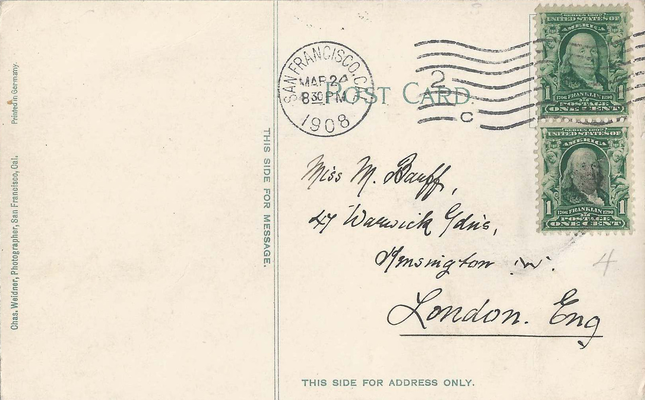 Printed in Germany.
Chas. Weidner, Photographer, San Francisco, Cal.
THIS SIDE FOR MESSAGE.
SAN FRANCISCO, C
MAR 24
8 30 PM
1908
2
C
POST CARD.
SERIES 1902
UNITED STATES OF
AMERICA
1 1
1706 FRANKLIN 1790
POSTAGE
ONE CENT
SERIES 1902
UNITED STATES OF
AMERICA
1 1
1706 FRANKLIN 1790
POSTAGE
ONE CENT
Miss M. Banff,
47 Warwick Gdns,
Kensington W.
London. Eng
4
THIS SIDE FOR ADDRESS ONLY.